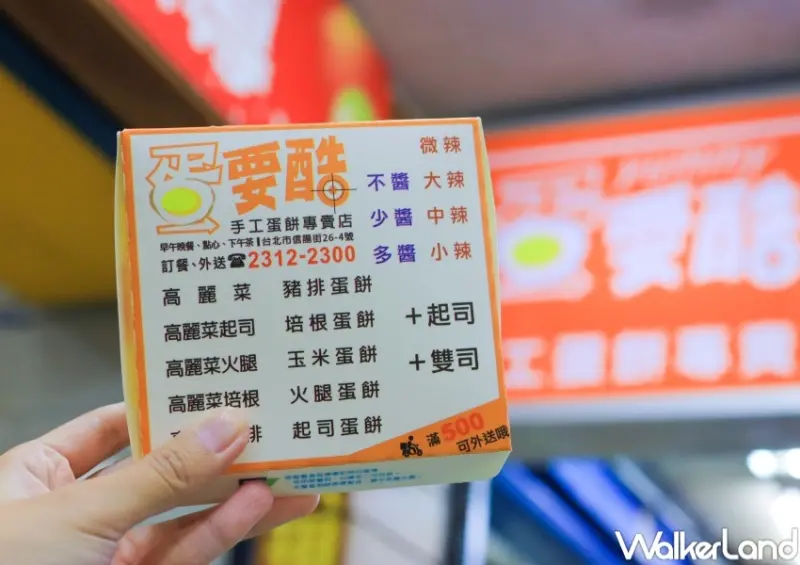 蛋要酷
手工蛋餅專賣店
早午晚餐、點心、下午茶 | 台北市信陽街26-4號
訂餐、外送☎2312-2300
微辣
不醬 大辣
少醬 中辣
多醬 小辣
高麗菜 豬排蛋餅
高麗菜起司 培根蛋餅 +起司
高麗菜火腿 玉米蛋餅 +雙司
高麗菜培根 火腿蛋餅
排 起司蛋餅
滿500
可外送哦
蛋要酷
工蛋餅專賣
WalkerLand